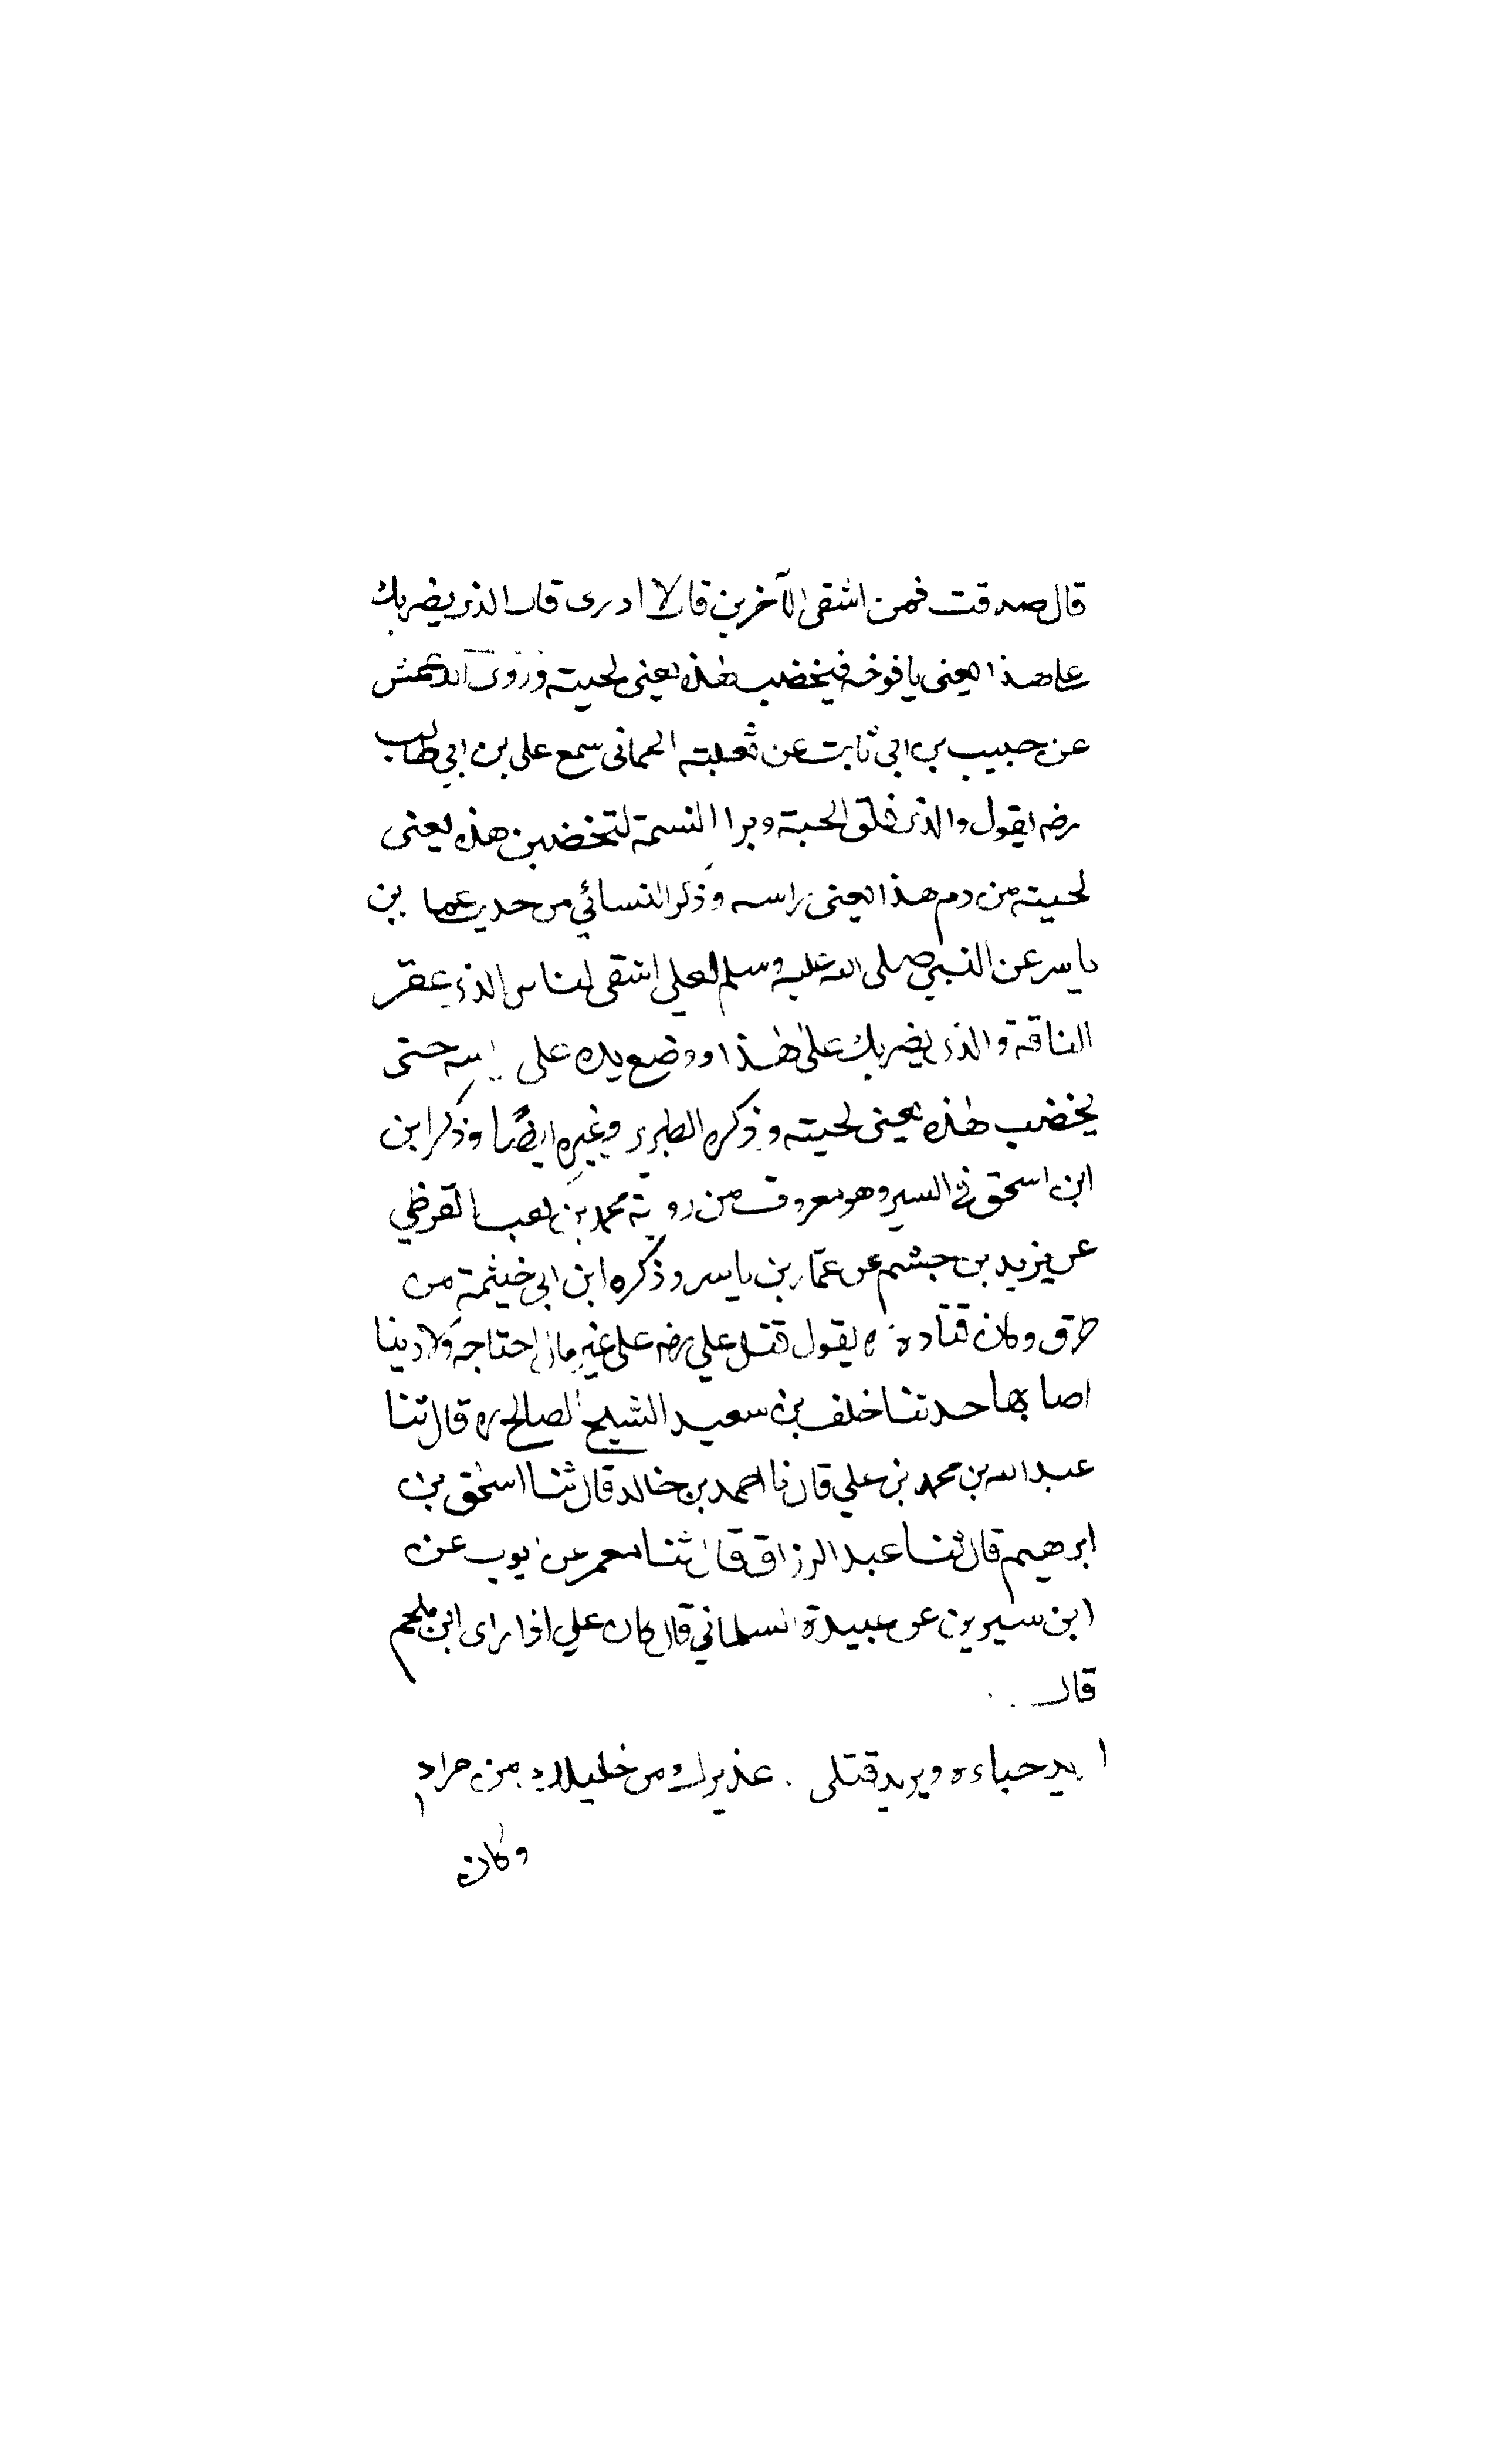 قال صدقت فمن اشقى الآخرين قال لا ادرى قال الذى يضربك
على هذا يعنى يافوخه فيخضب هذه يعنى لحيته وروى الاعمش
عن حبيب بن ابى ثابت عن ثعلبته الحمانى سمع على بن ابي طالب
رضه يقول والذى فلق الحبة وبرا النسمة لتخضبن هذه يعنى
لحيته من دم هذا يعنى راسه وذكر النسائي من حديث عمار بن
ياسر عن النبي صلى الله عليه وسلم لعلي اشقى الناس الذى عقر
الناقة والذى يضربك على هذا ووضع يده على راسه حتى
يخضب هذه يعنى لحيته وذكره الطبرى وغيره ايضًا وذكر ابن
ابن اسحق فى السير وهو معروف من رواية محمد بن كعب القرظي
عن يزيد بن جشم عن عمّار بن ياسر وذكره ابن ابى خيثمة من
طرق وكان قتادة يقول قتل علي رضه على غير مال احتاجه ولا دينا
اصابها حدثنا خلف بن سعيد الشيخ الصالح ره قال ثنا
عبد الله بن محمد بن علي قال نا احمد بن خالد قال ثنا اسحق بن
ابرهيم قال ثنا عبد الرزاق قال ثنا معمر عن ايوب عن
ابن سيرين عن عبيدة السلماني قال كان علي اذا راى ابن ملجم
قال
اريد حباءه ويريد قتلى . عذيرك من خليلك من مراد
وكان